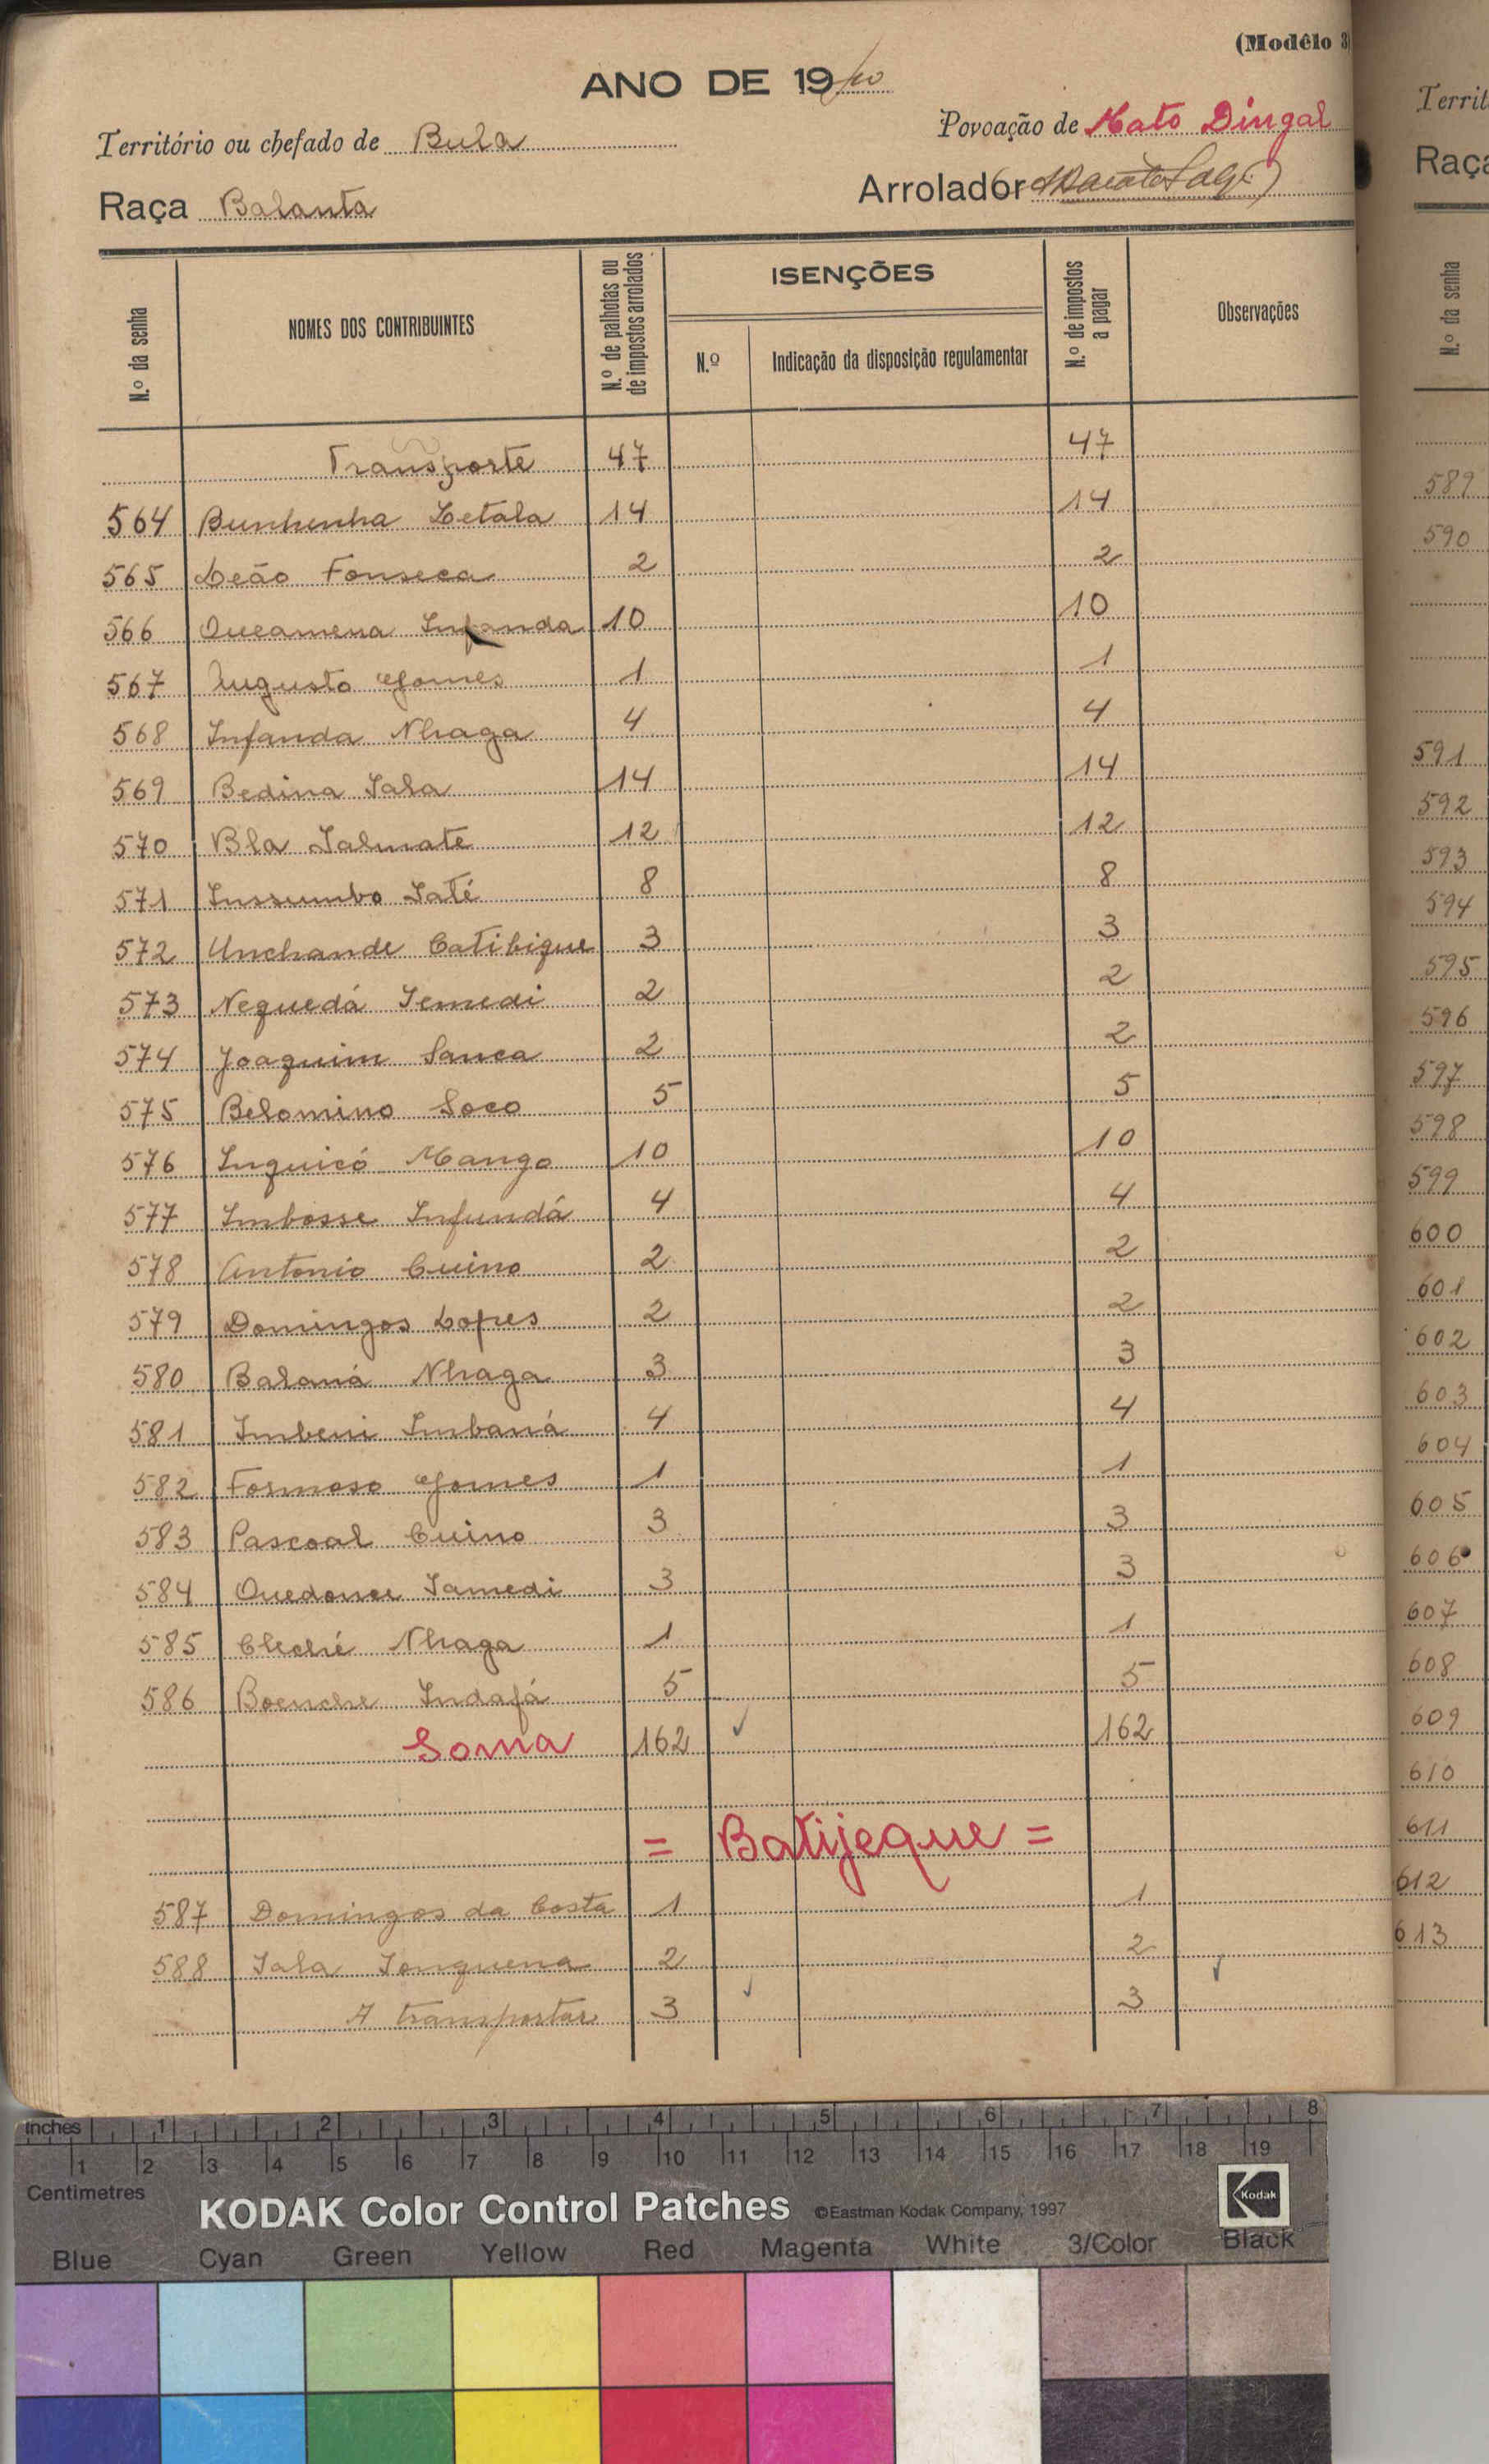 (Modêlo 3
ANO DE 1940
Território ou chefado de Bula
Povoação de Mato Dingal
Raça Balanta
Arrolador
N.º da senha
NOMES DOS CONTRIBUINTES
N.º de palhotas ou de impostos arrolados
ISENÇÕES
N.º
Indicação da disposição regulamentar
N.º de impostos a pagar
Observações
Transporte 47 47
564 Bunhenha Letala 14 14
565 Leão Fonseca 2 2
566 Queamena Infanda 10 10
567 Augusto Gomes 1 1
568 Infanda Nhaga 4 4
569 Bedina Sala 14 14
570 Bla Salmate 12 12
571 Inssumbo Saté 8 8
572 Unchande Catibique 3 3
573 Nequedá Semedi 2 2
574 Joaquim Sanca 2 2
575 Belomino Soco 5 5
576 Inquicó Mango 10 10
577 Imbosse Infundá 4 4
578 Antonio Cuino 2 2
579 Domingos Lopes 2 2
580 Balaná Nhaga 3 3
581 Imbeni Imbaná 4 4
582 Formoso Gomes 1 1
583 Pascoal Cuino 3 3
584 Quedonce Samedi 3 3
585 Cheché Nhaga 1 1
586 Boenche Indafá 5 5
Soma 162 162
= Batijeque =
587 Domingos da Costa 1 1
588 Sala Songuena 2 2
A transportar 3 3
Territ
Raça
N.º da senha
589
590
591
592
593
594
595
596
597
598
599
600
601
602
603
604
605
606
607
608
609
610
611
612
613
Inches 1 2 3 4 5 6 7 8
1 2 3 4 5 6 7 8 9 10 11 12 13 14 15 16 17 18 19
Centimetres
KODAK Color Control Patches ©Eastman Kodak Company, 1997 Kodak
Blue Cyan Green Yellow Red Magenta White 3/Color Black